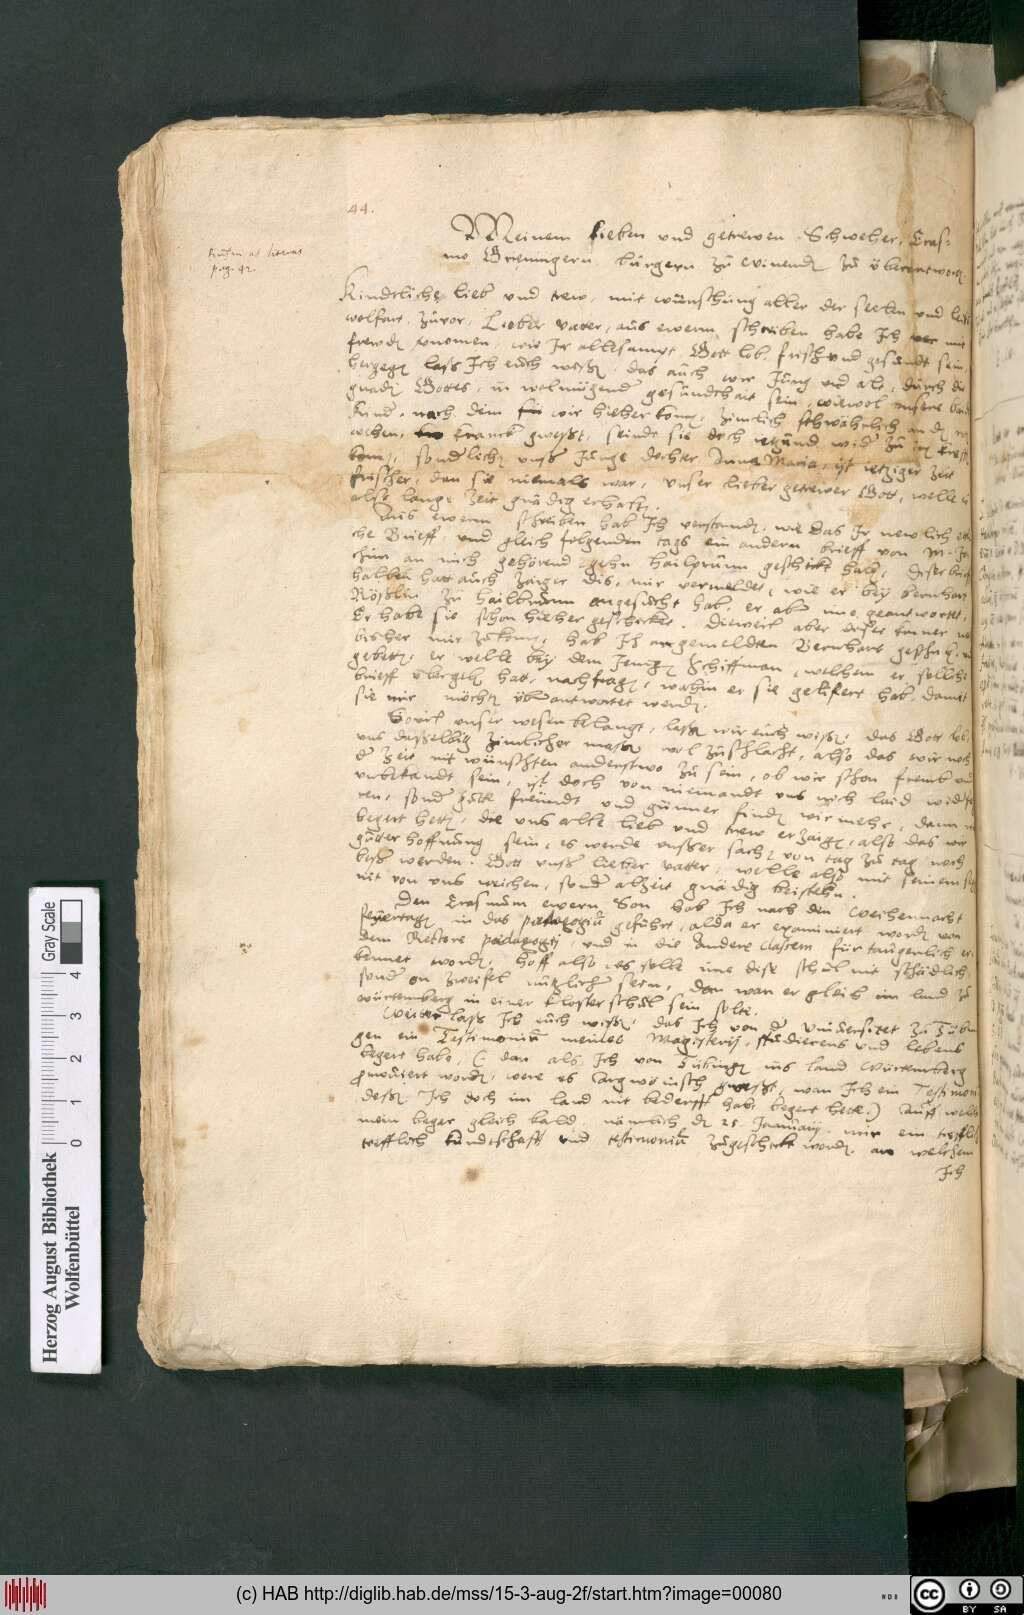 44.
ad literas
pag. 42.
Meinem lieben und getrewen Schweher, Eras-
mo Grieningern, burgern zu Winendn zu überantworten
Kindtliche lieb und trew, mit wünschung aller der seelen und leibs
wolfart zuvor, Lieber vatter, aus ewerm schreiben habe Ich mit
frewdn vernomen, wie Ir allesampt, Gott lob, frisch und gesundt sein,
hergegn lass Ich euch wissn, das auch wir Jung und alt, durch die
gnadn Gottes, in wolmügender gesundthait sein, wiewol unsere
Kinder, nach dem wir hieher komn, zimlich schwährlich an dn
wehen, kranck gwesst, seindt sie doch yetzund wider zu irn krefftn
komn, sonderlich unser Junge dochter Anna Maria, ist ietziger zeit
frischer, dan sie niemals war, unser lieber getrewer Gott, welle
also lange zeit gnädig erhaltn.
Aus ewerm schreiben hab Ich verstandn, wie das Ir newlich
che Brieff, und gleich folgenden tags ein andern brieff von M. Jo
chim an mich gehörend gehn hailprunn geschickt habt, diser brieff
halben hatt auch zaiger dis, mir vermeldet, wie er bey Bernhart
Rößlin zu hailbrunn angesucht hab, er aber ime geantwortet,
Er habe sie schon hieher geschicket. Dieweil aber diser keiner
bisher mir zukomn, hab Ich angemeldten Bernhart geschribn
gebettn, er welle bey dem Jenign Schiffman, welchem er solliche
brieff übergebn hatt, nachfragn, wahin er sie gelifert hab, damit
sie mir möchtn überantwortet werdn.
Sovil unser wesen belangt, lassn wir euch wissn, das Gott lob
uns dasselbig zimlicher massn wol zuschlecht, also das wir noch
der zeit nit wünschten anderstwo zu sein, ob wir schon fremb und
unbekandt sein, ist doch von niemandt uns noch laid widerfa
ren, sonder gutte freündt und günner findn wir mehr, dann wir
begert hettn, die uns alle lieb und trew erzaign, also das wir
gutter hoffnung sein, es werde unsser sachn von tag zu tag noch
besser werden. Gott unser lieber vatter, welle also mit seinem
nit von uns weichen, sonder alzeit gnädig beistehn.
Den Erasmum ewern Son hab Ich nach den Weihennacht
feyertagn in das pædagogiū geführt, alda er examiniert wordn von
dem Rectore pædagogij, und in die andere Classem für taugenlich er
kennet wordn, hoff also, es solle ime dise schul nit schädlich
sonder on zweifel nutzlicher sein, dan wan er gleich im land zu
würtemberg in einer klosterschul sein solte.
Weiter lass Ich euch wissn, das Ich von der Universitet zu Tubin
gen ein Testimoniū meines Magisterij, studierens und lebens
begert habe, (: dan als Ich von Tübingn ins land Würtemberg
promoviert wordn, were es Argwönisch gwesst, wan Ich ein Testimoni
dessn Ich doch im land nit bedorfft hab, begert hette:) Auff welch
mein beger gleich bald, nämlich dn 25. Januarij, mir ein
trefflich kundtschafft und testimoniū zugeschickt wordn, an welchem
Ich
Herzog August Bibliothek
Wolfenbüttel
Gray Scale
0 1 2 3 4
(c) HAB http://diglib.hab.de/mss/15-3-aug-2f/start.htm?image=00080
WDB
cc BY SA